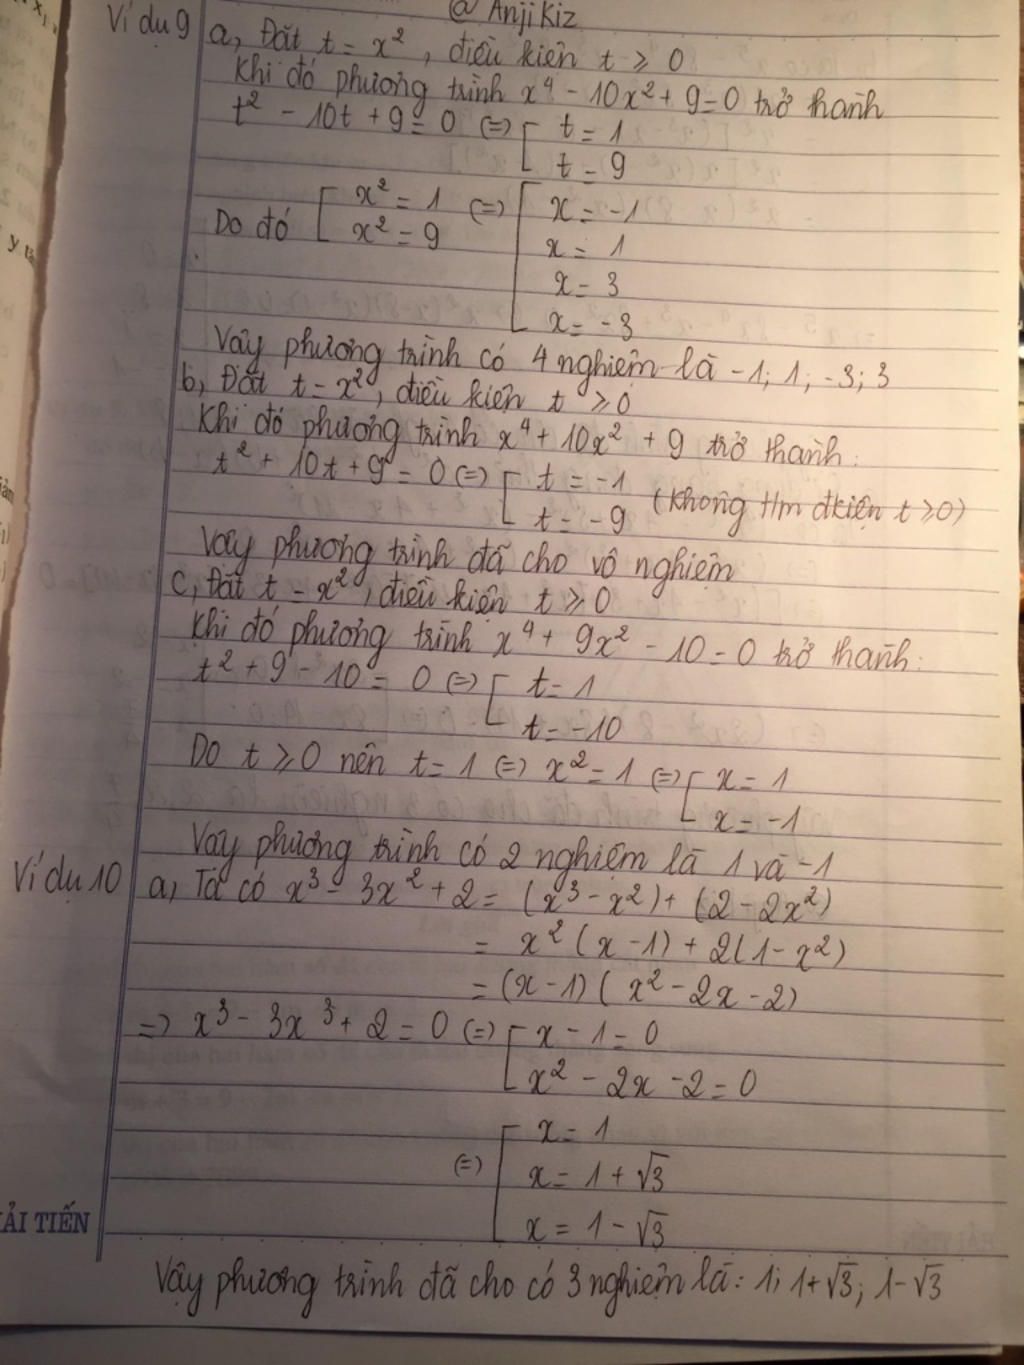 @ AnjiKiz
Ví dụ 9 a, Đặt t = x², điều kiện t ≥ 0
Khi đó phương trình x⁴ - 10x² + 9 = 0 trở thành
t² - 10t + 9 = 0 (=) [ t = 1
t = 9
Do đó [ x² = 1 (=) [ x = -1
x² = 9
x = 1
x = 3
x = -3
Vậy phương trình có 4 nghiệm là -1; 1; -3; 3
b, Đặt t = x², điều kiện t ≥ 0
Khi đó phương trình x⁴ + 10x² + 9 trở thành:
t² + 10t + 9 = 0 (=) [ t = -1
t = -9 (không t/m đkiện t ≥ 0)
Vậy phương trình đã cho vô nghiệm
c, Đặt t = x², điều kiện t ≥ 0
Khi đó phương trình x⁴ + 9x² - 10 = 0 trở thành:
t² + 9 - 10 = 0 (=) [ t = 1
t = -10
Do t ≥ 0 nên t = 1 (=) x² = 1 (=) [ x = 1
x = -1
Vậy phương trình có 2 nghiệm là 1 và -1
Ví dụ 10 a, Ta có x³ - 3x² + 2 = (x³ - x²) + (2 - 2x²)
= x² (x - 1) + 2(1 - x²)
= (x - 1) (x² - 2x - 2)
=) x³ - 3x³ + 2 = 0 (=) [ x - 1 = 0
x² - 2x - 2 = 0
(=) [ x = 1
x = 1 + √3
x = 1 - √3
ẢI TIẾN
Vậy phương trình đã cho có 3 nghiệm là: 1; 1 + √3; 1 - √3